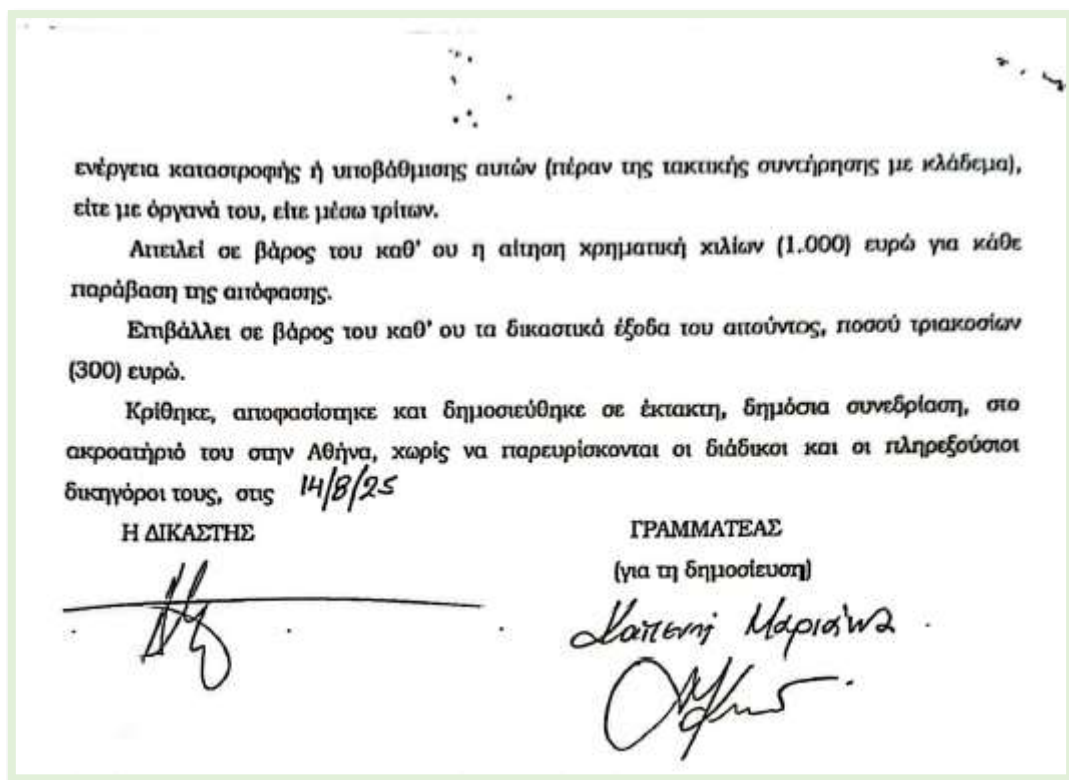 ενέργεια καταστροφής ή υποβάθμισης αυτών (πέραν της τακτικής συντήρησης με κλάδεμα),
είτε με όργανά του, είτε μέσω τρίτων.
Απειλεί σε βάρος του καθ' ου η αίτηση χρηματική χιλίων (1.000) ευρώ για κάθε
παράβαση της απόφασης.
Επιβάλλει σε βάρος του καθ' ου τα δικαστικά έξοδα του αιτούντος, ποσού τριακοσίων
(300) ευρώ.
Κρίθηκε, αποφασίστηκε και δημοσιεύθηκε σε έκτακτη, δημόσια συνεδρίαση, στο
ακροατήριό του στην Αθήνα, χωρίς να παρευρίσκονται οι διάδικοι και οι πληρεξούσιοι
δικηγόροι τους, στις 14/8/25
Η ΔΙΚΑΣΤΗΣ
ΓΡΑΜΜΑΤΕΑΣ
(για τη δημοσίευση)
Μαριάννα